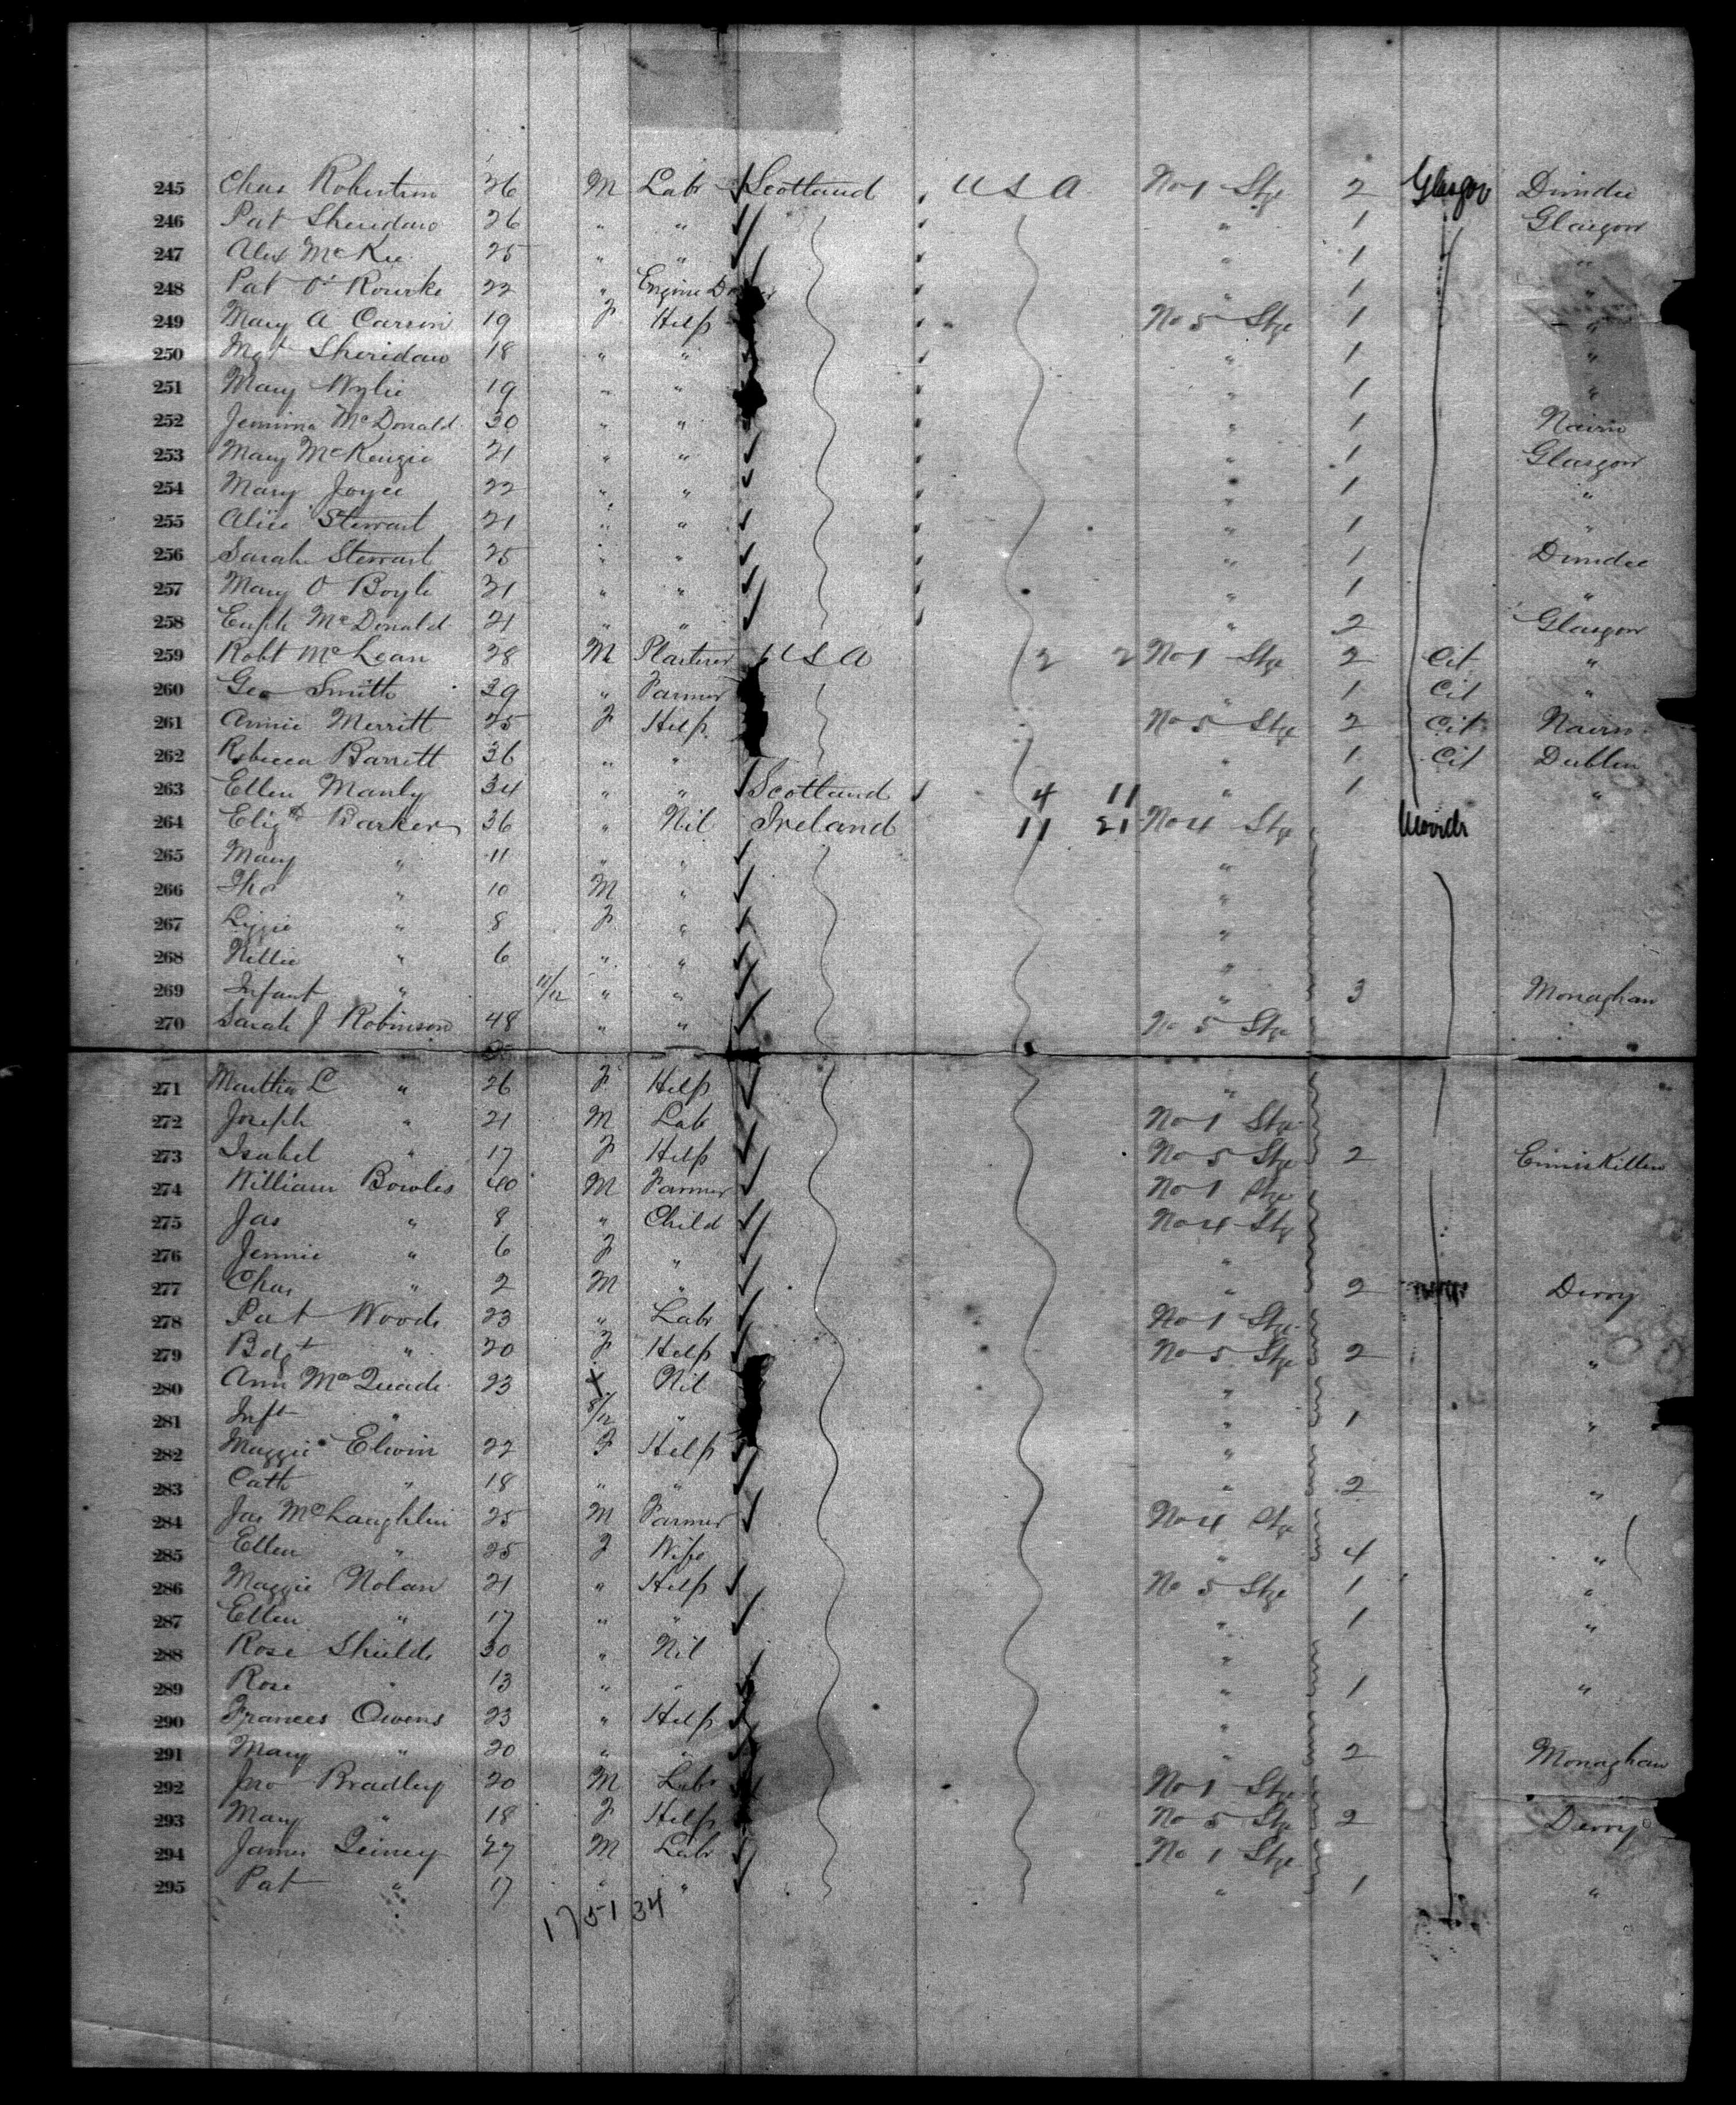 245 Chas Robertson 26 M Labr Scotland U S A No 1 Stge 2 Glasgow Dundee
246 Pat Sheridan 26 " " " 1 Glasgow
247 Alex McKee 25 " " " 1 "
248 Pat O'Rourke 22 " Engine " 1 "
249 Mary A Carson 19 F Help No 5 Stge 1 "
250 Mgt Sheridan 18 " " " 1 "
251 Mary Wylie 19 " " " 1 "
252 Jemima McDonald 30 " " " 1 Nairn
253 Mary McKenzie 21 " " " 1 Glasgow
254 Mary Joyce 22 " " " 1 "
255 Alice Stewart 21 " " " 1 "
256 Sarah Stewart 25 " " " 1 Dundee
257 Mary O Boyle 21 " " " 1 "
258 Euph McDonald 21 " " " 2 Glasgow
259 Robt McLean 28 M Plasterer U S A 2 2 No 1 Stge 2 Cit "
260 Geo Smith 39 " Farmer " 1 Cit "
261 Annie Merritt 25 F Help No 5 Stge 2 Cit Nairn
262 Rebecca Barrett 36 " " " 1 Cit Dublin
263 Ellen Manly 34 " " Scotland 4 11 " 1 "
264 Elizth Barker 36 " Nil Ireland 11 21 No 4 Stge
265 Mary " 11 " " "
266 Tho " 10 M " "
267 Lizzie " 8 F " "
268 Nellie " 6 " " "
269 Infant " 11/12 " " " 3 Monaghan
270 Sarah J Robinson 48 " " No 5 Stge
271 Martha L " 26 F Help "
272 Joseph " 21 M Lab No 1 Stge
273 Isabel " 17 F Help No 5 Stge 2 Enniskillen
274 William Bowles 40 M Farmer No 1 Stge
275 Jas " 8 " Child No 4 Stg
276 Jennie " 6 F " "
277 Chas " 2 M " " 2 Derry
278 Pat Woods 23 " Labr No 1 Stge
279 Bdgt " 20 F Help No 5 Stge 2 "
280 Ann McQuade 23 Nil "
281 Inft " 8/12 " " 1 "
282 Maggie Elwin 22 F Help "
283 Cath " 18 " " " 2 "
284 Jas McLaughlin 25 M Farmer No 4 Stge
285 Ellen " 25 F Wife " 4 "
286 Maggie Nolan 21 " Help No 5 Stge 1 "
287 Ellen " 17 " " " 1 "
288 Rose Shields 30 " Nil "
289 Rose " 13 " " " 1 "
290 Frances Owens 23 " Help "
291 Mary " 20 " " " 2 Monaghan
292 Jno Bradley 20 M Labr No 1 Stge
293 Mary " 18 F Help No 5 Stge 2 Derry
294 James Deiney 27 M Labr No 1 Stge
295 Pat " 17 " " " 1 "
17 51 34